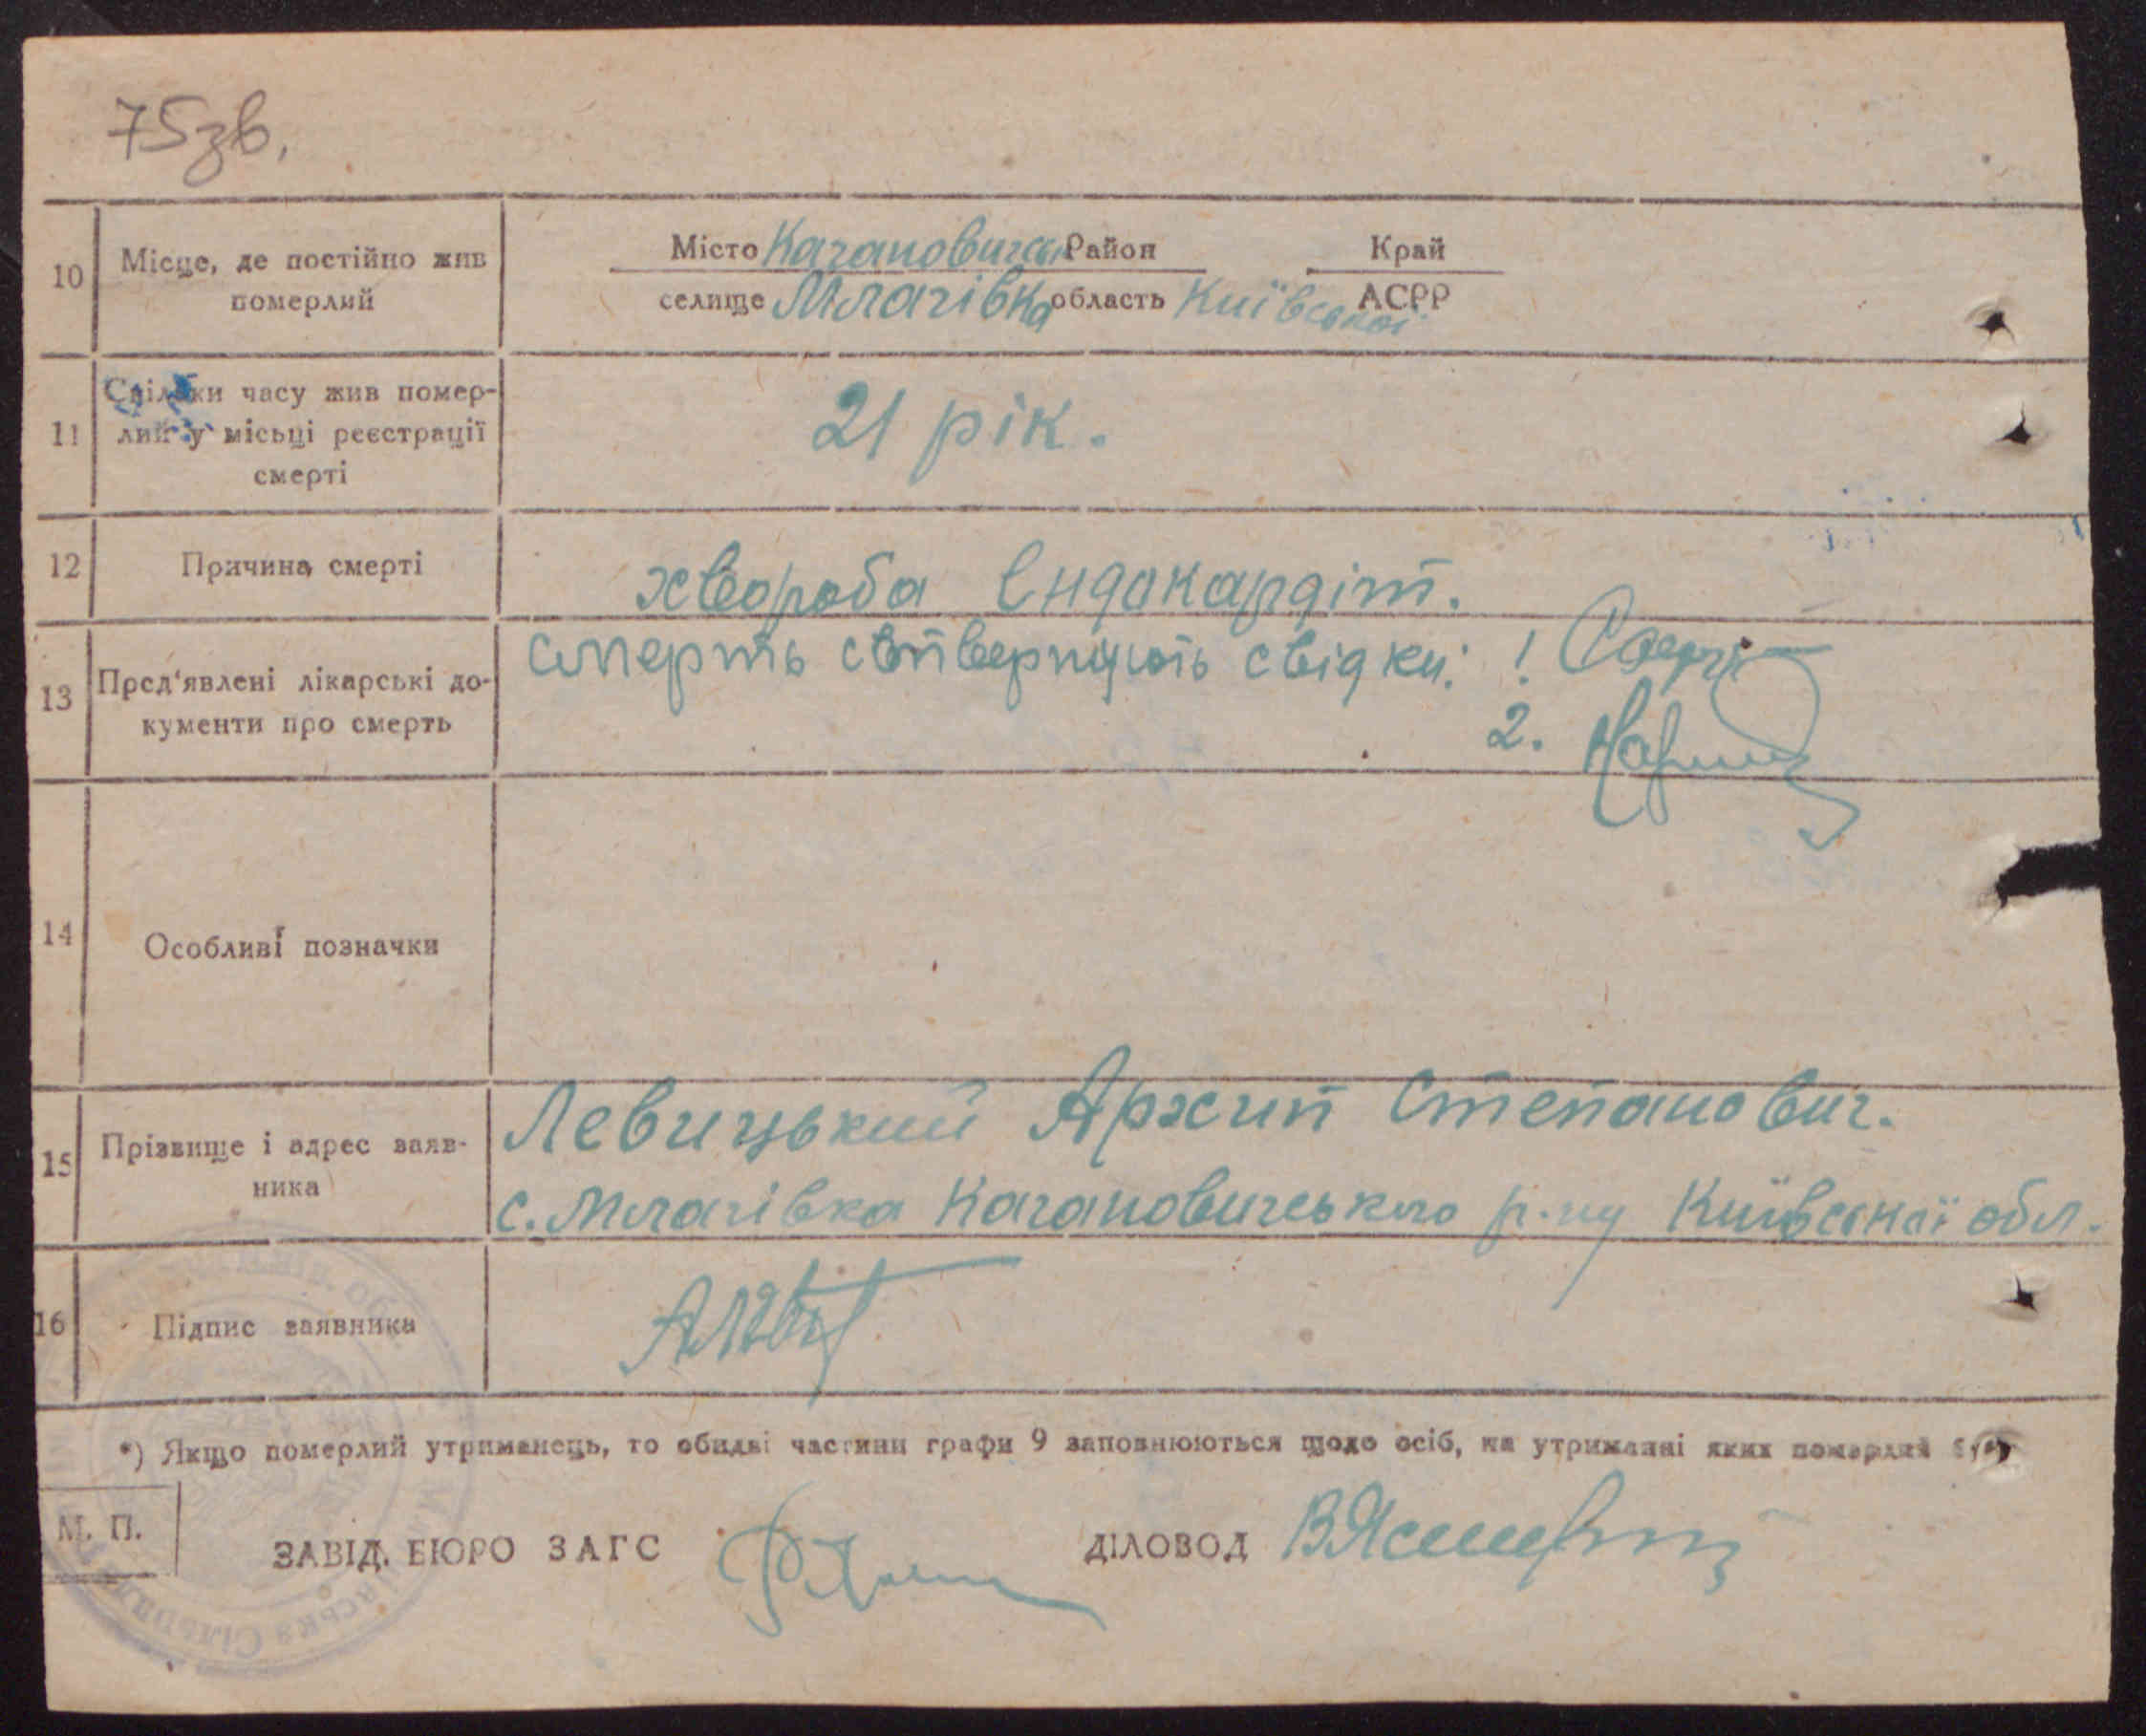 75зв.
10 Місце, де постійно жив померлий
Місто Кагановичськ Район Край
селище Млачівка область Київської АСРР
11 Скільки часу жив помер-
лий у місьці реєстрації
смерті
21 рік.
12 Причина смерті хвороба Ендокардіт.
13 Пред'явлені лікарські до-
кументи про смерть
смерть стверджують свідки: 1
2.
14 Особливі позначки
15 Прізвище і адрес заяв-
ника
Левицький Архип Степанович.
с. Млачівка Кагановичського р-ну Київської обл.
16 Підпис заявника
*) Якщо померлий утриманець, то обидві частини графи 9 заповнюються щодо осіб, на утриманні яких померлий був
М. П.
ЗАВІД. БЮРО ЗАГС ДІЛОВОД